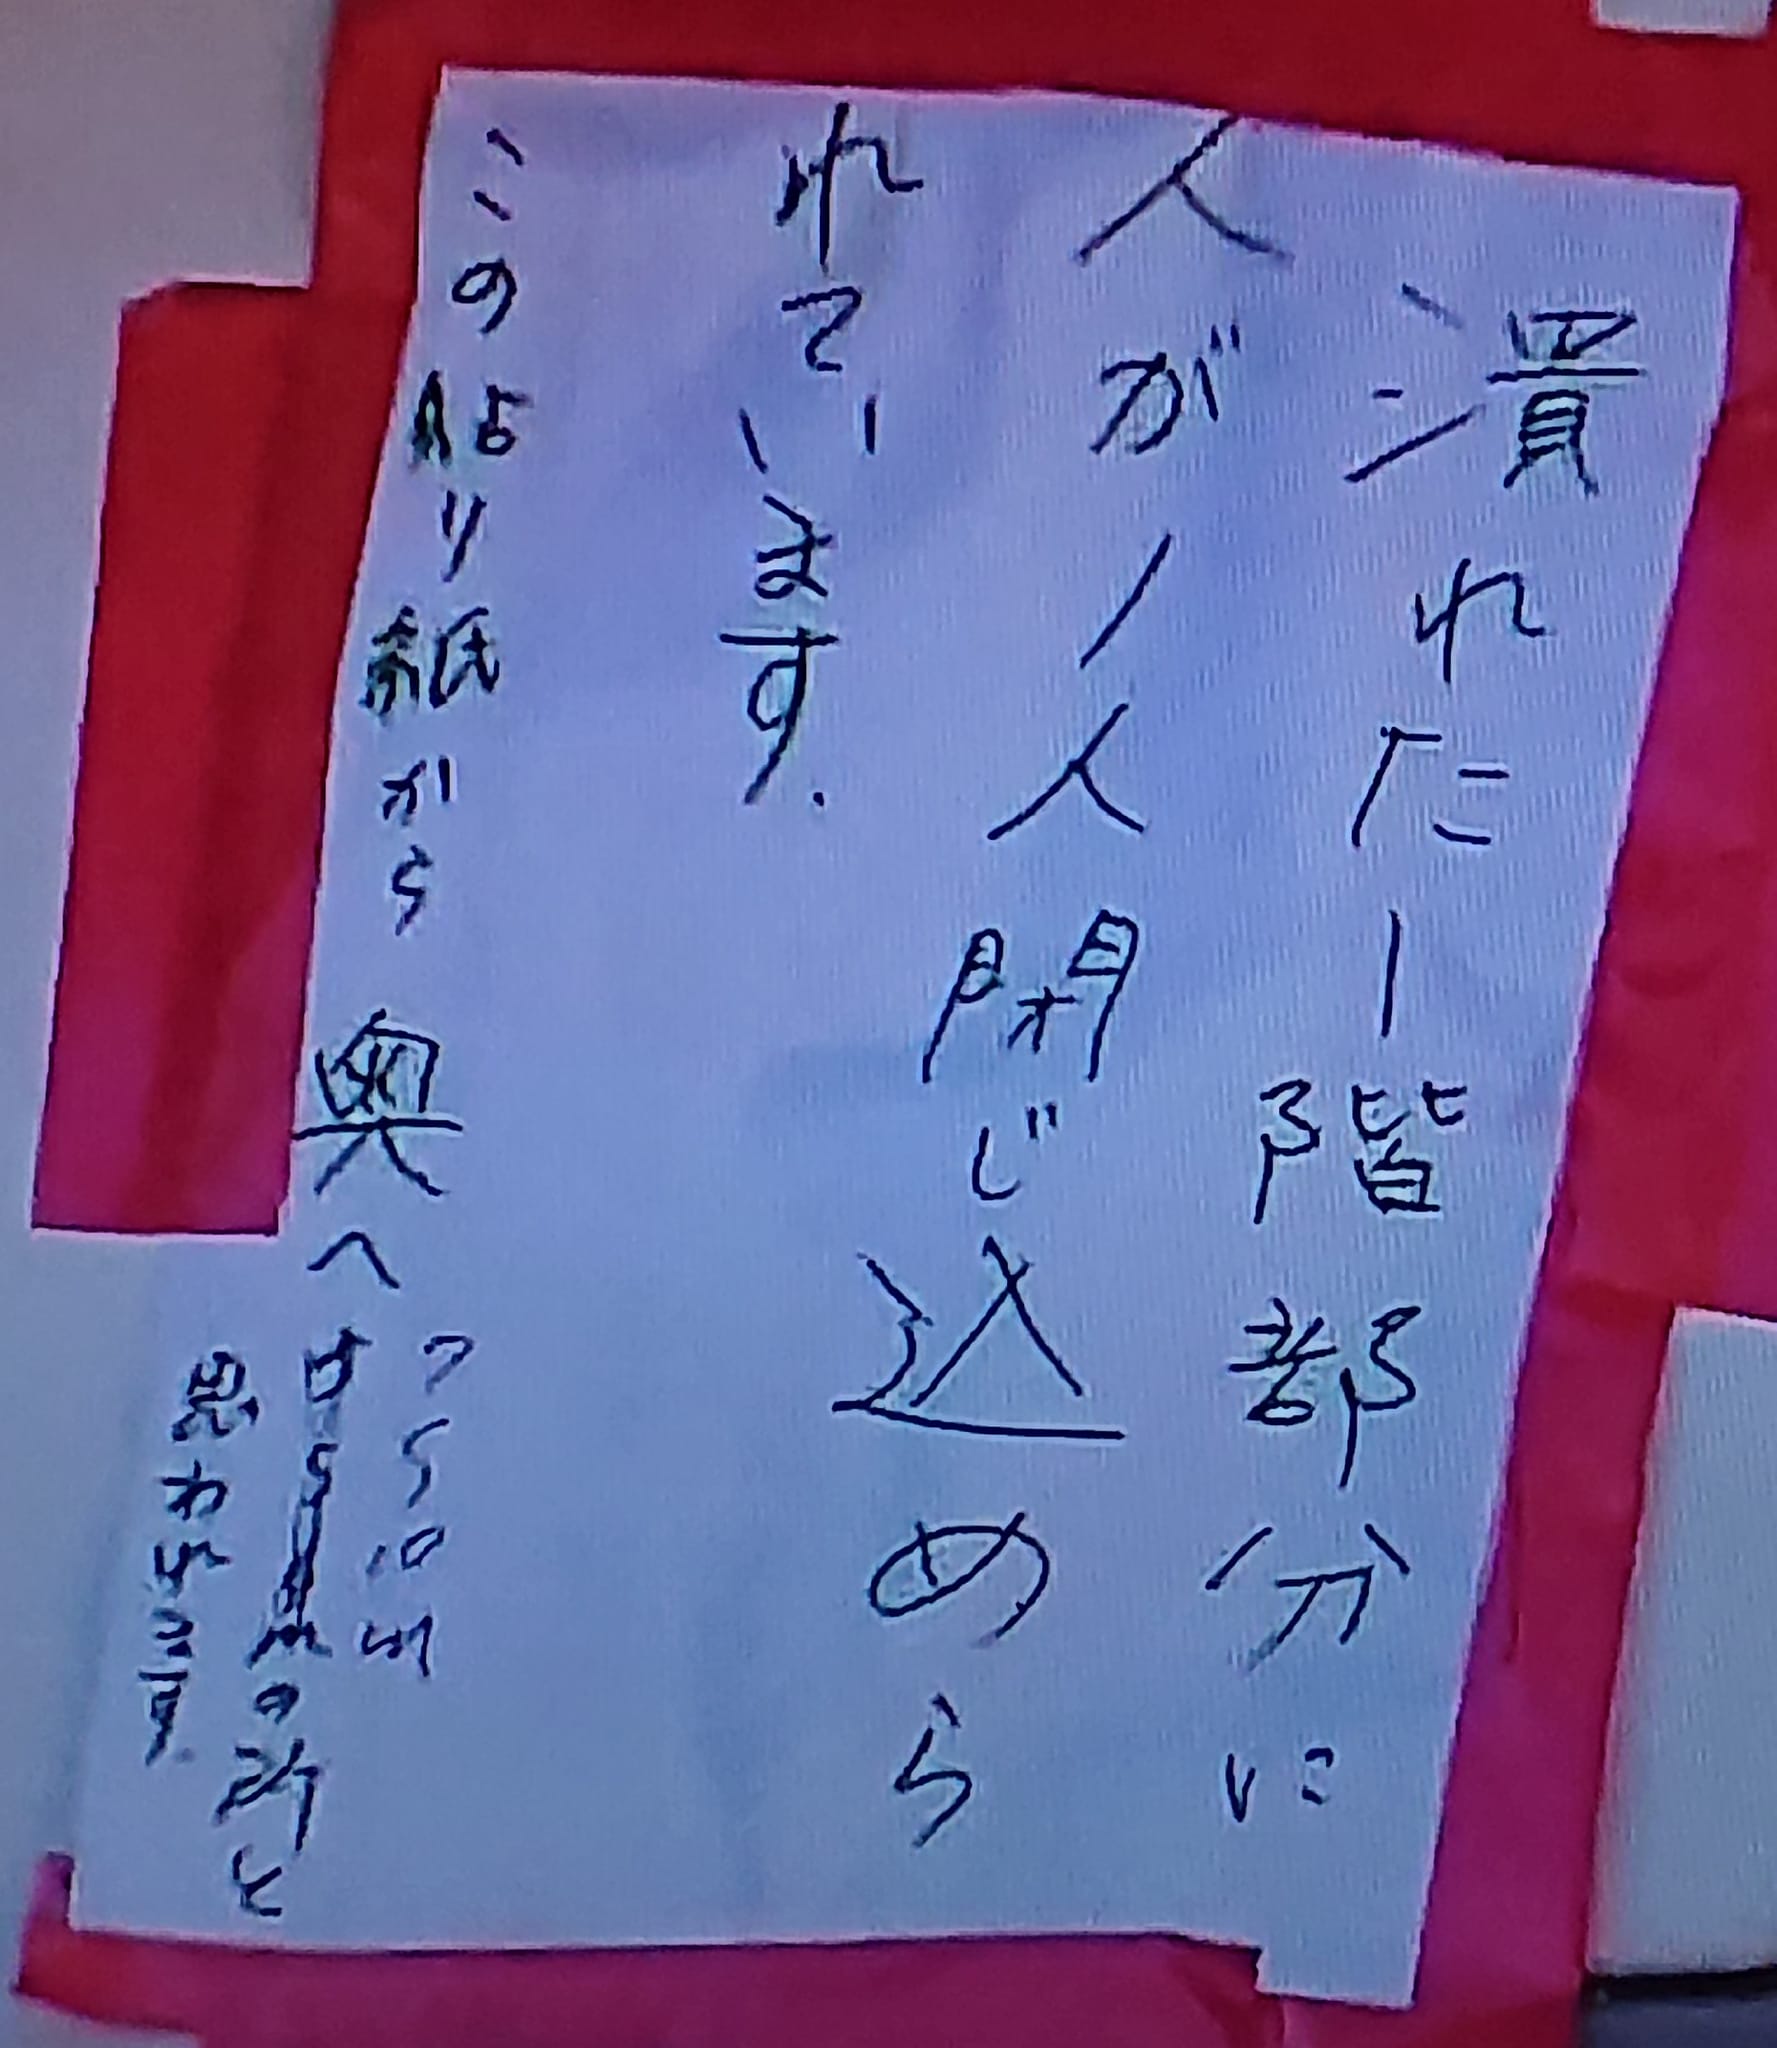 潰れた一階部分に
人が一人閉じ込めら
れています.
この貼り紙から奥へ
の所と
思われます.